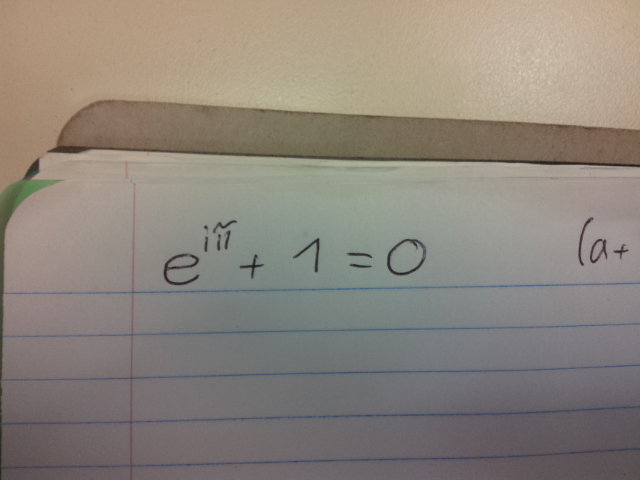 e^{iπ} + 1 = 0 (a+